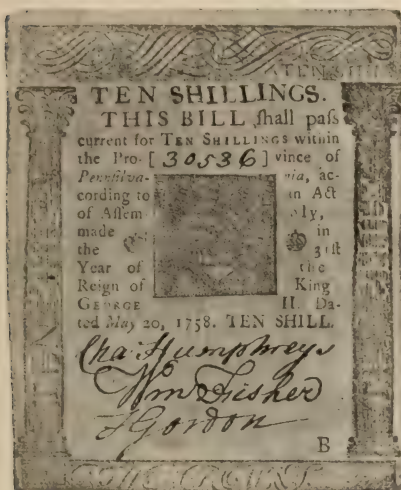 TEN SHILLINGS.
THIS BILL ſhall paſs
current for TEN SHILLINGS within
the Pro- [ 30536 ] vince of
Pennſilva- nia, ac-
cording to an Act
of Aſſem bly,
made in
the 31ſt
Year of the
Reign of King
GEORGE II. Da-
ted May 20, 1758. TEN SHILL.
Cha: Humphreys
Wm Fisher
T Gordon
B